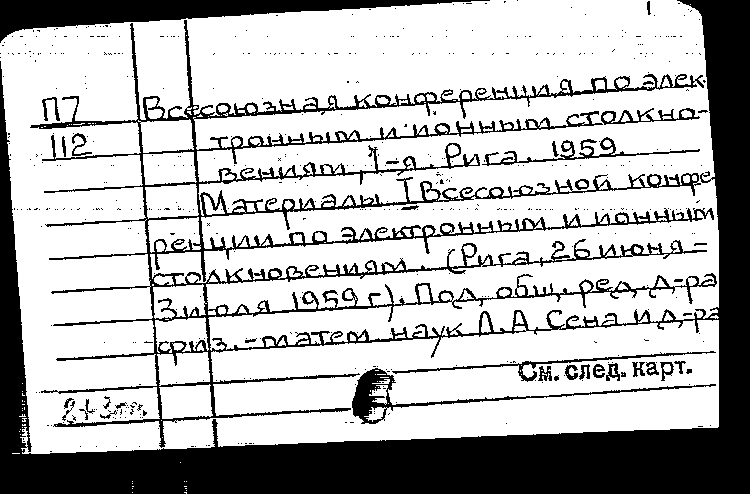 П7 Всесоюзная конференция по элек-
112 тронным и ионным столкно-
вениям, I-я. Рига. 1959.
Материалы I Всесоюзной конфе
ренции по электронным и ионным
столкновениям. (Рига, 26 июня =
3 июля 1959 г). Под общ. ред. д-ра
физ.-матем наук Л.А. Сена и д-ра
См. след. карт.